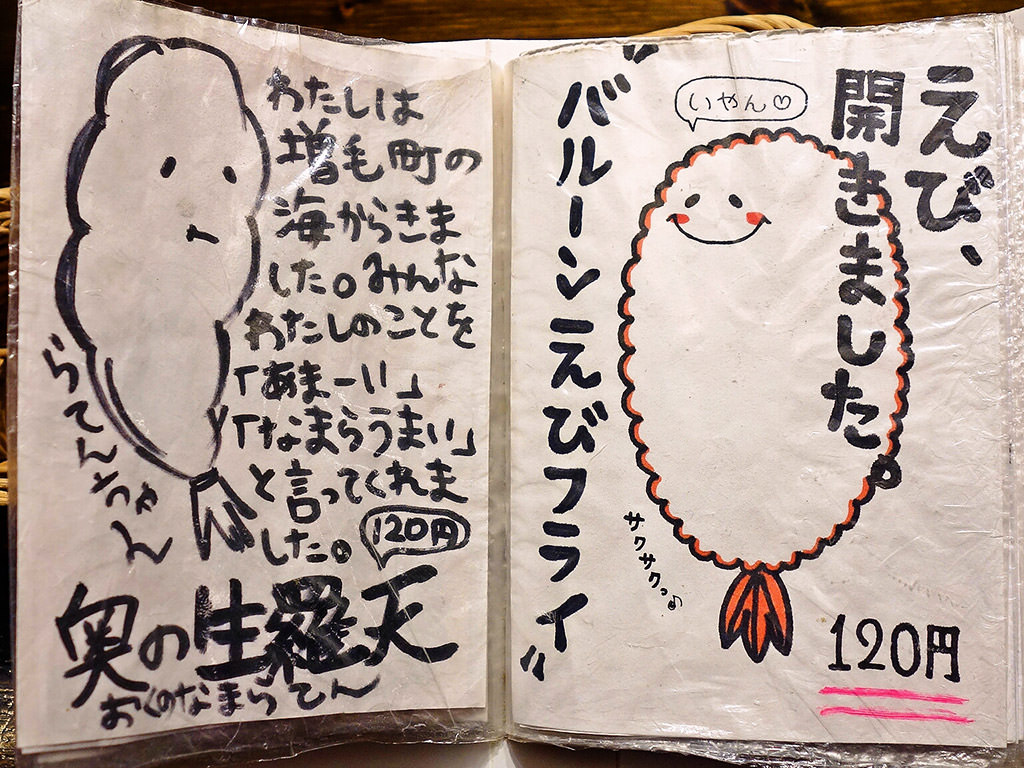 わたしは
増毛町の
海からきま
した。みんな
わたしのことを
「あまーい」
「なまらうまい」
と言ってくれま
した。
120円
らてんちゃん
奥の生羅天
おくのなまらてん
えび、
開きました。
いやん♡
"バルーンえびフライ"
サクサクっ♪
120円